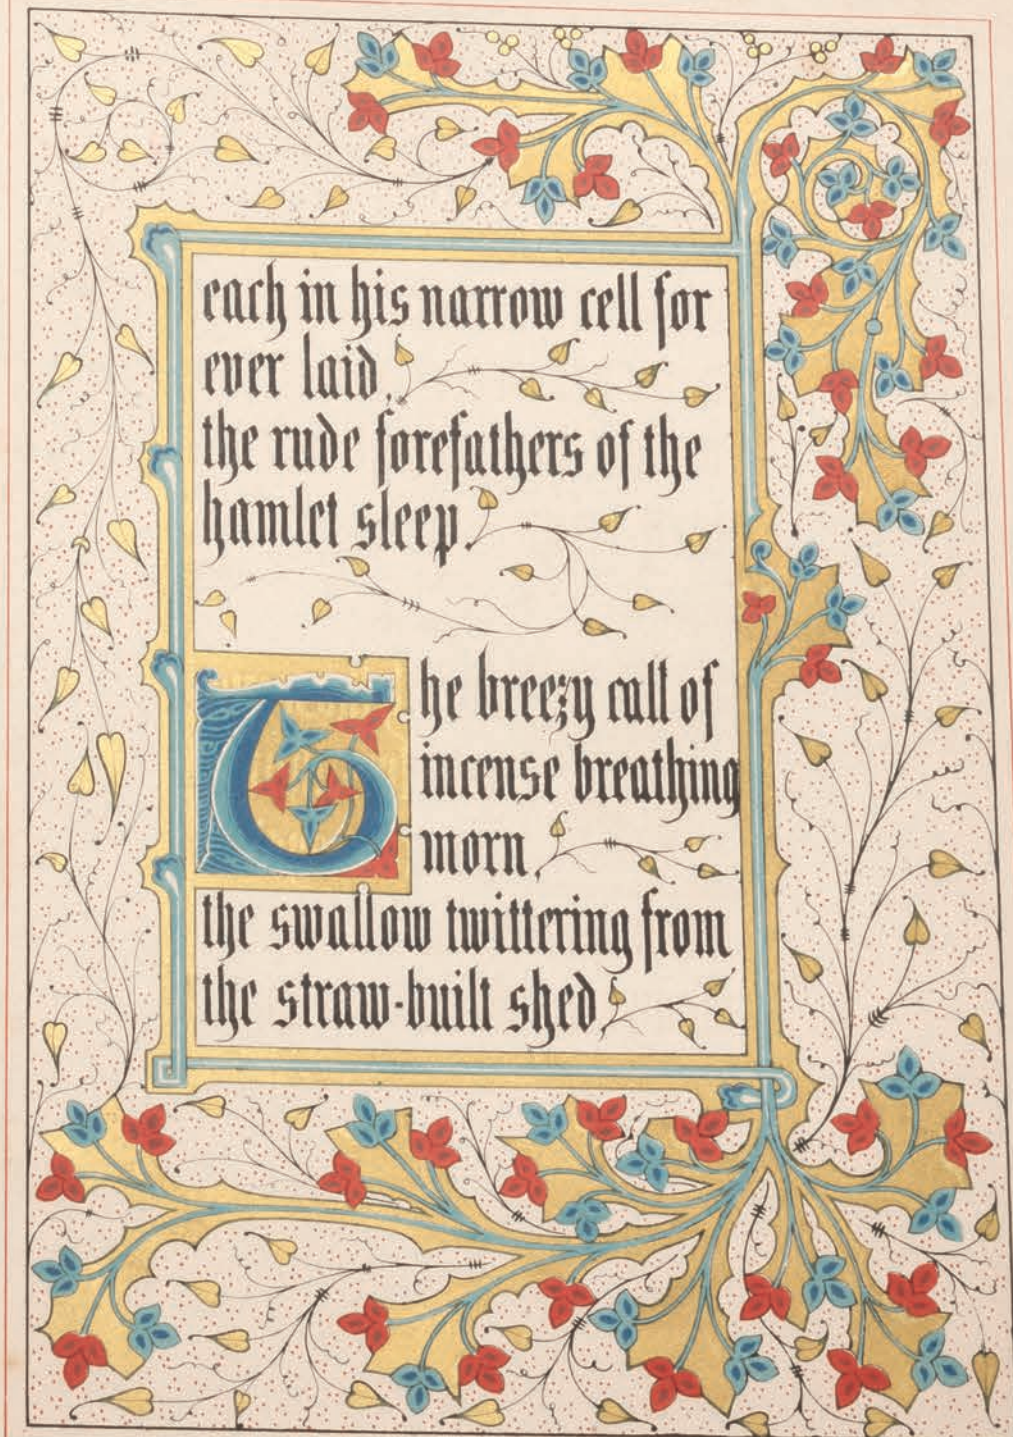 each in his narrow cell for
ever laid,
the rude forefathers of the
hamlet sleep.
The breezy call of
incense breathing
morn,
the swallow twittering from
the straw-built shed,